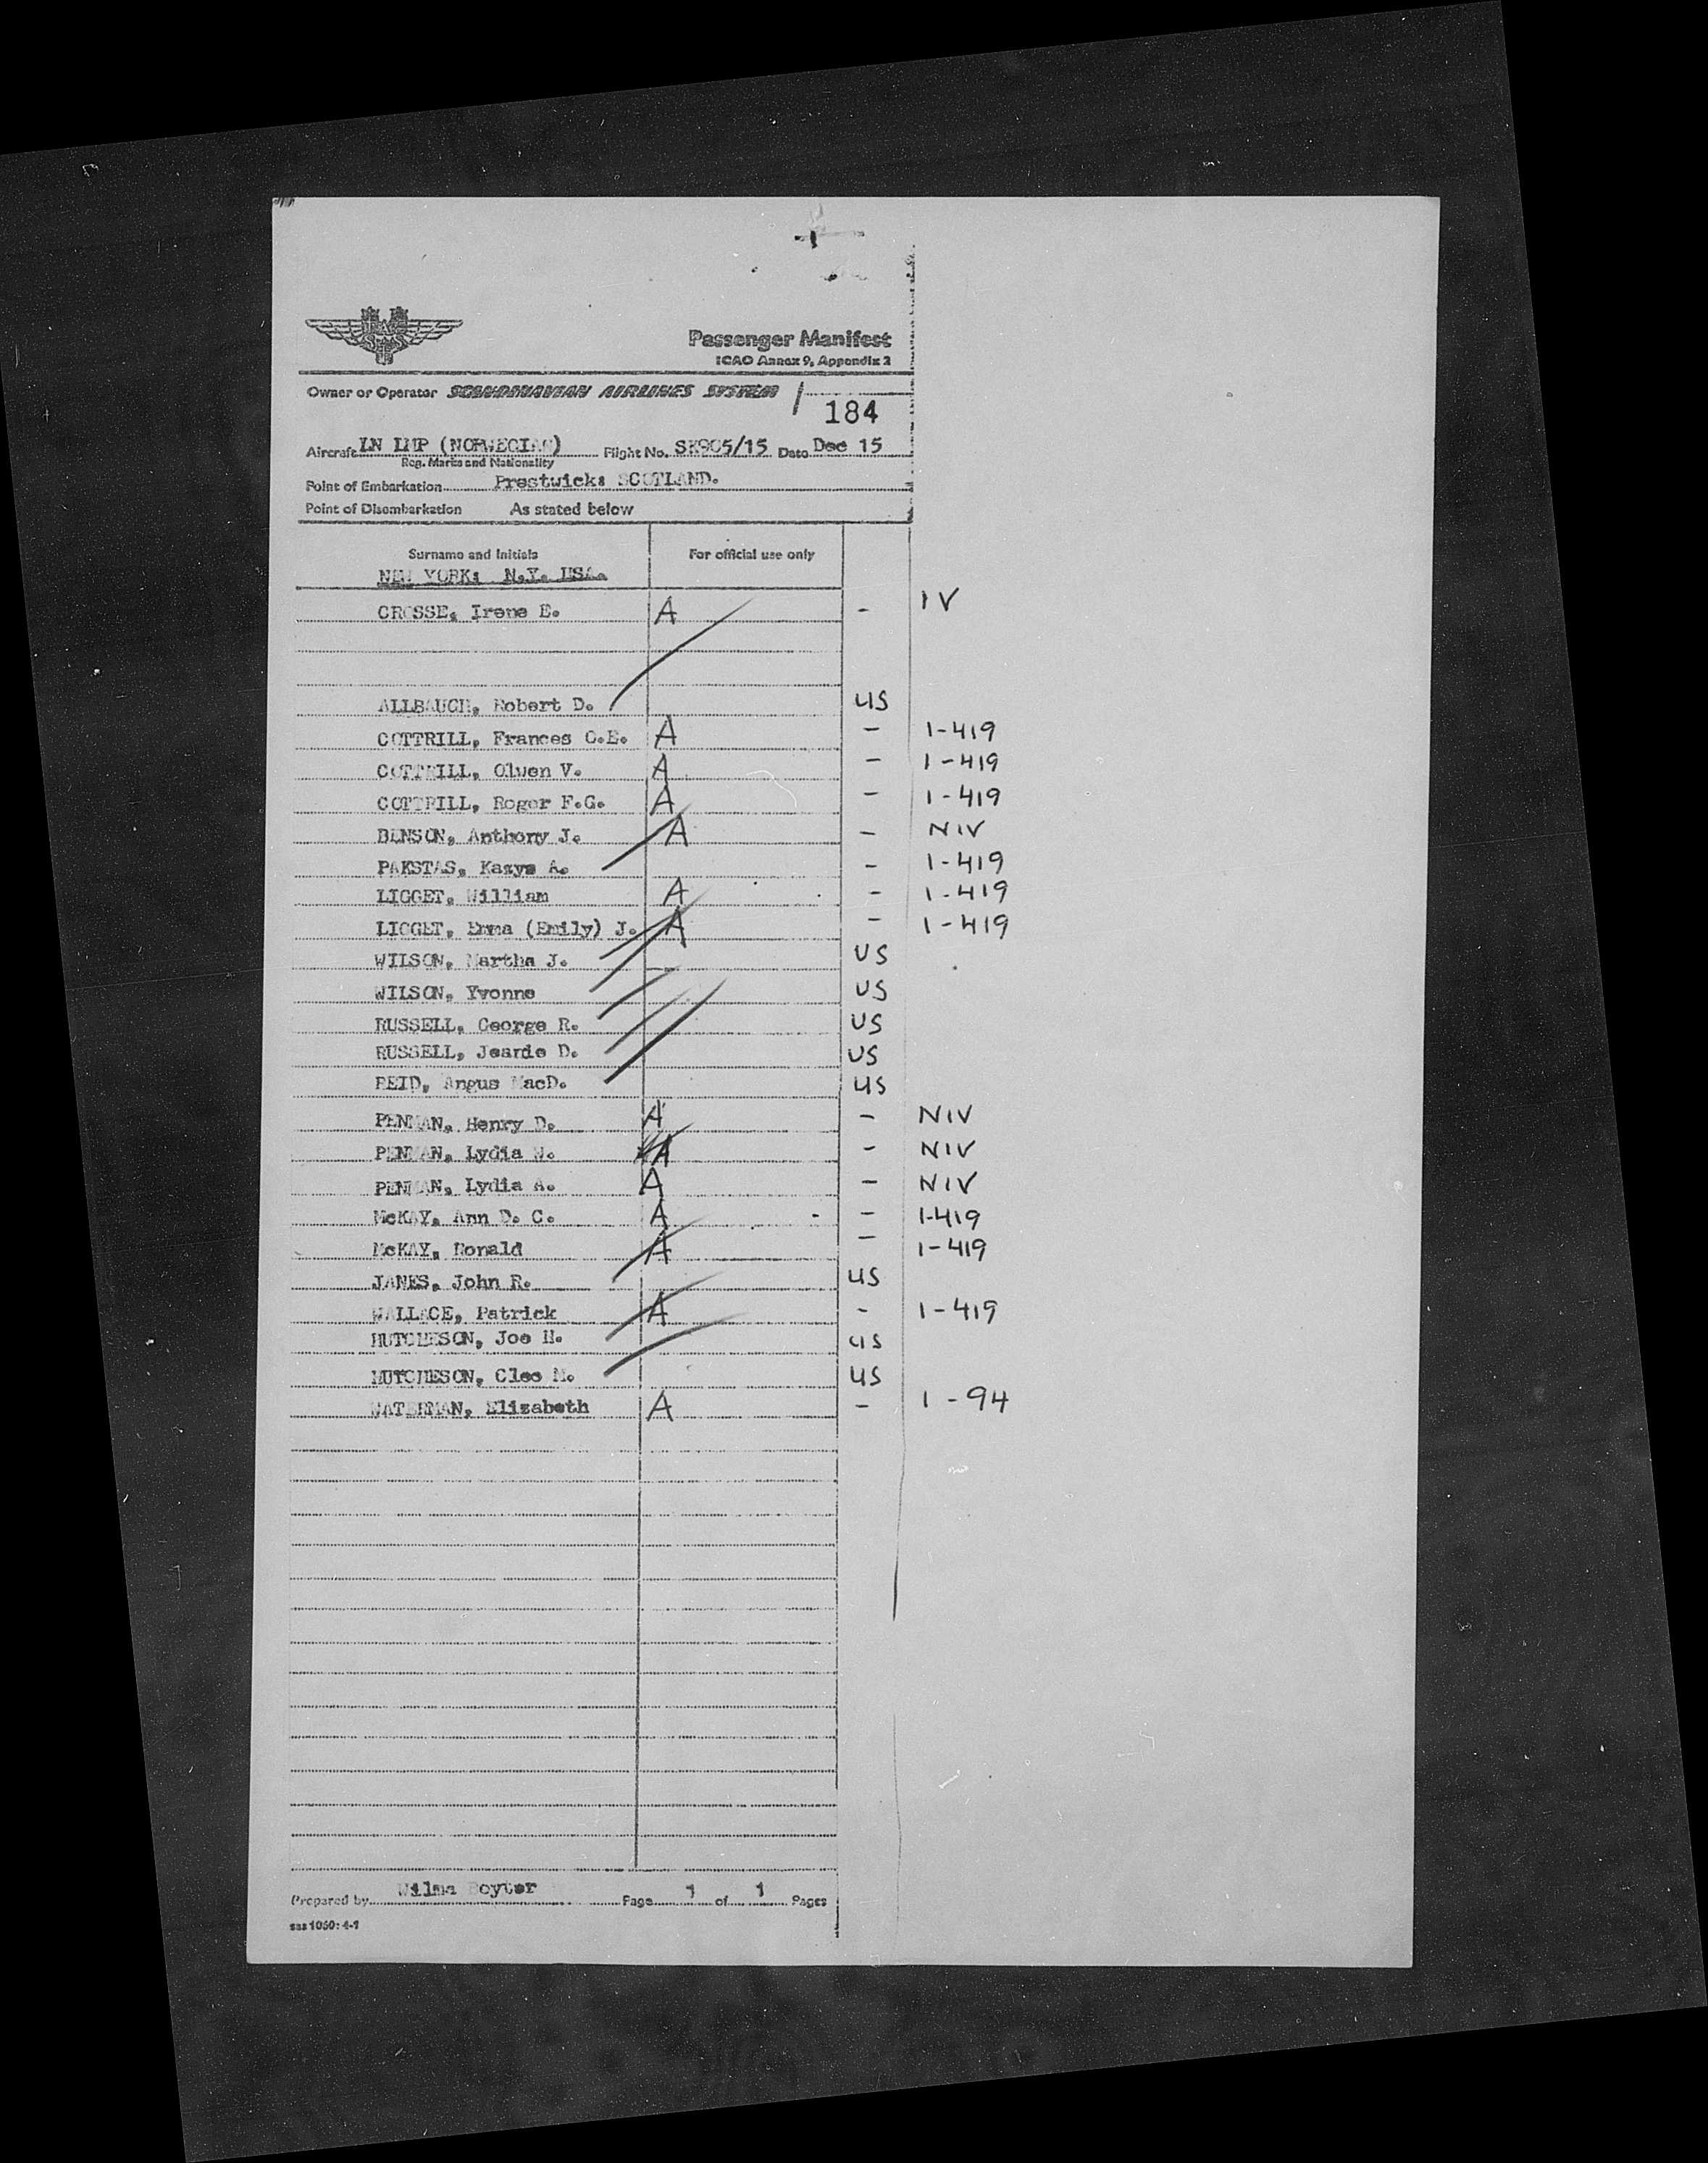 Passenger Manifest
ICAO Annex 9, Appendix 2
Owner or Operator SCANDINAVIAN AIRLINES SYSTEM / 184
Aircraft LN LMP (NORWEGIAN) Flight No. SK905/15 Date Dec 15
Reg. Marks and Nationality
Point of Embarkation Prestwick: SCOTLAND.
Point of Disembarkation As stated below
Surname and Initials For official use only
NEW YORK: N.Y. USA.
CROSSE, Irene E. A - IV
ALLBAUGH, Robert D. US
COTTRILL, Frances C.E. A - 1-419
COTTRILL, Olwen V. A - 1-419
COTTRILL, Roger F.G. A - 1-419
BENSON, Anthony J. A - NIV
PAKSTAS, Kazys A. - 1-419
LIGGET, William A - 1-419
LIGGET, Emma (Emily) J. A - 1-419
WILSON, Martha J. US
WILSON, Yvonne US
RUSSELL, George R. US
RUSSELL, Jeanie D. US
REID, Angus MacD. US
PENMAN, Henry D. A - NIV
PENMAN, Lydia W. A - NIV
PENMAN, Lydia A. A - NIV
McKAY, Ann D. C. A - 1-419
McKAY, Ronald A - 1-419
JANES, John R. US
WALLACE, Patrick A - 1-419
HUTCHESON, Joe H. US
HUTCHESON, Cleo M. US
WATERMAN, Elizabeth A - 1-94
Prepared by Wilma Boyter Page 1 of 1 Pages
sas 1060: 4-1